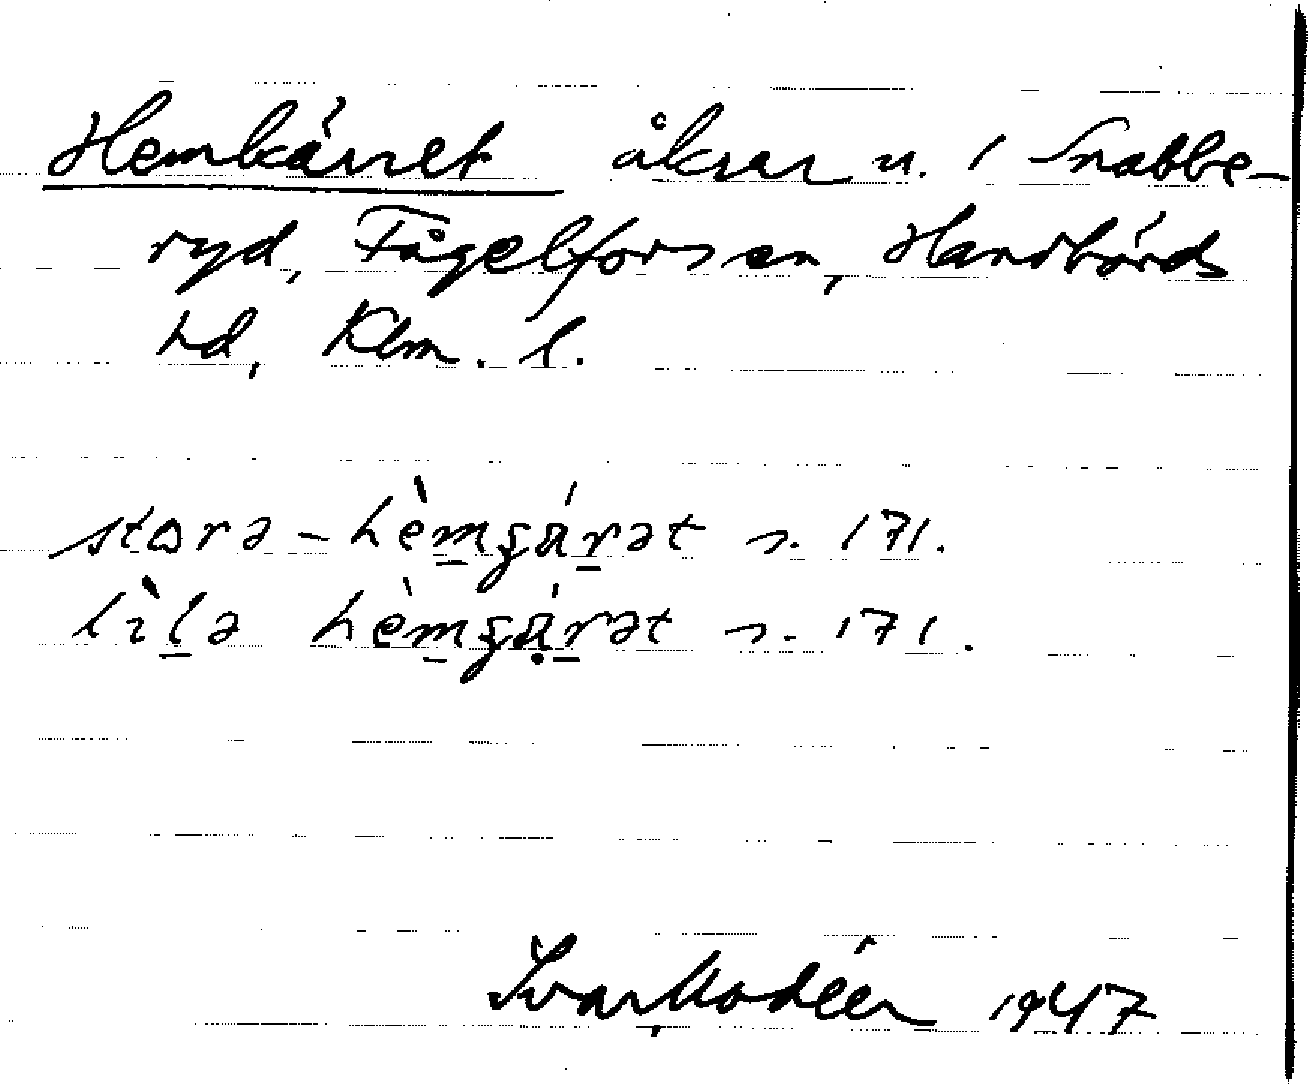 Hemkärret åkrar u. 1 Snabbe-
ryd, Fågelforsen, Handbörds
hd, Klm. l.
stora-hèmçä́rət s. 171.
lìlə hèmçä́rət s. 171.
Ivar Modéer 1947